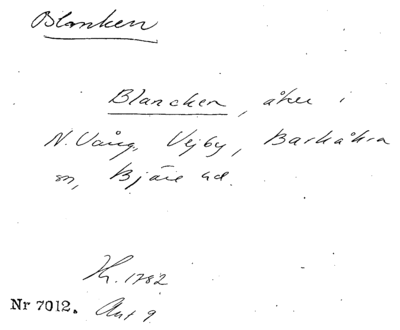 Blanken
Blancken, åker i
N. Vång, Vejby, Barkåkra
sn, Bjäre hd.
Kh. 1782
Nr 7012. Akt 9